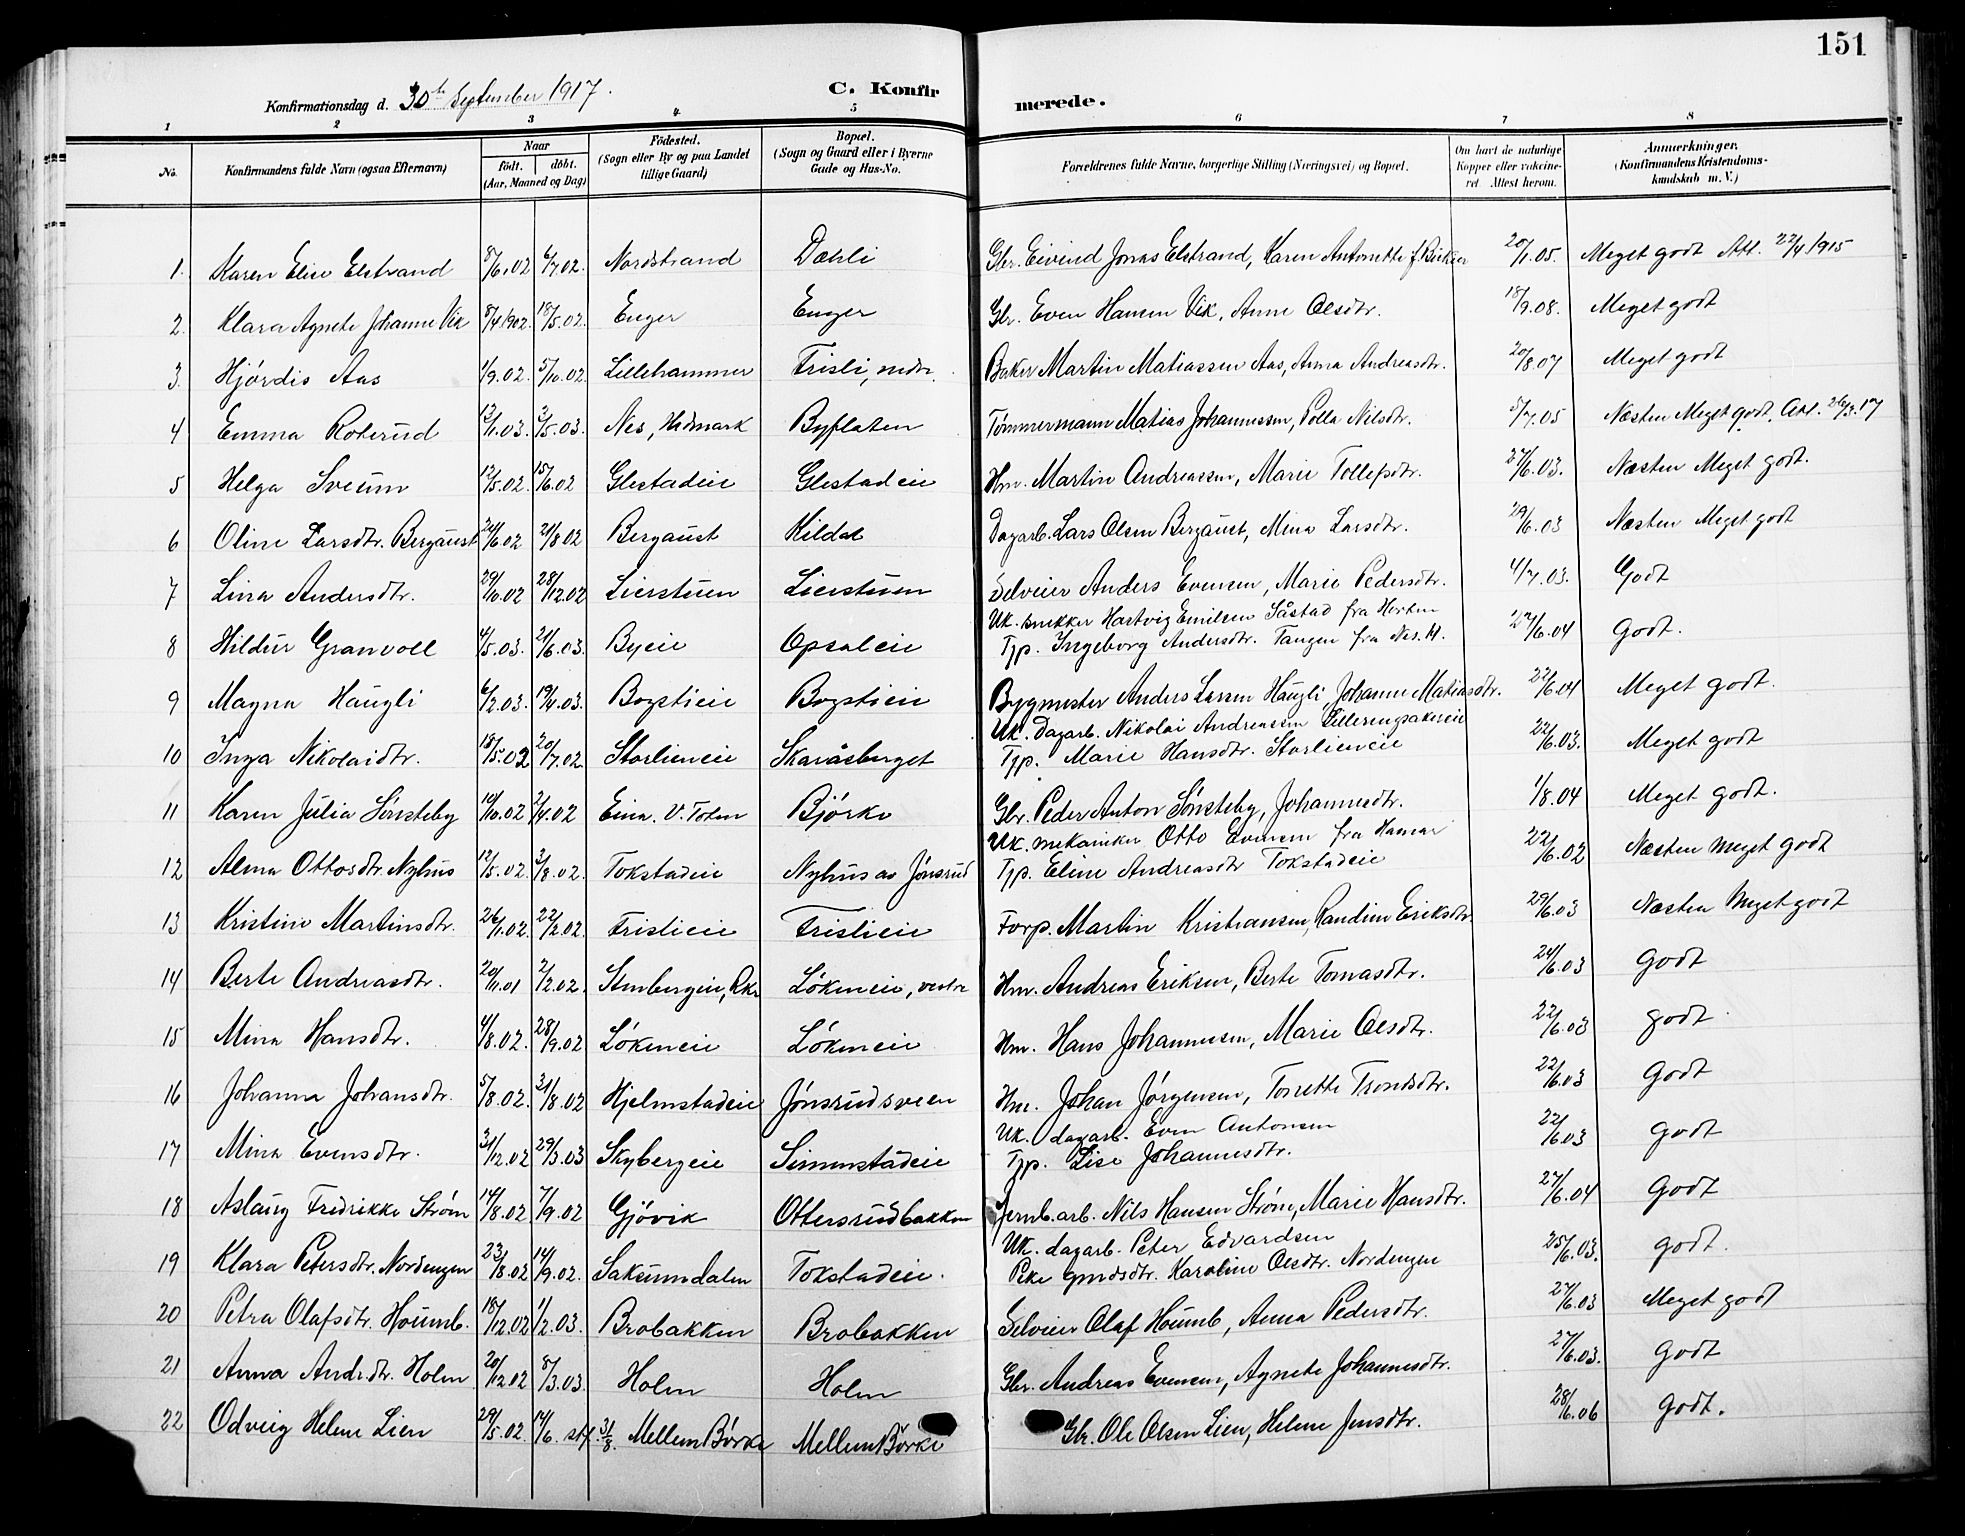 151
Konfirmationsdag d. 30te September 1917.
C. Konfir
merede.
1 2 3 4 5 6 7 8
No.
Konfirmandens fulde Navn (ogsaa Efternavn)
Naar
født. døbt.
(Aar, Maaned og Dag)
Fødested.
(Sogn eller By og paa Landet
tillige Gaard)
Bopæl.
(Sogn og Gaard eller i Byerne
Gade og Hus-No.
Forældrenes fulde Navne, borgerlige Stilling (Næringsvei) og Bopæl.
Om havt de naturlige
Kopper eller vakcine-
ret. Attest herom.
Anmerkninger.
(Konfirmandens Kristendoms-
kundskab m. V.)
1. Karen Elise Elstrand 8/6.02 6/7.02. Nordstrand Dæhli Gbr. Eivind Jonas Elstrand, Karen Antonette f. 20/1.05. Meget godt Att. 22/4 1915
2. Klara Agnete Johanne Vik 8/4 1902. 18/5.02. Enger Enger Gbr. Even Hansen Vik, Anne Olsdtr. 18/9.08. Meget godt
3. Hjørdis Aas 1/9.02. 5/10.02. Lillehammer Frisli, nedre. Baker Martin Matiassen Aas, Anna Andreasdtr. 20/8.07 Meget godt
4 Emma Roterud 13/1.03. 3/5.03. Nes, Hedmark Byflaten Tømmermann Matias Johannessen, Polla Nilsdtr. 5/7.05 Næsten Meget godt. Att. 26/3.17
5 Helga Sveum 12/5.02. 15/6.02 Glestadeie Glestadeie Hm. Martin Andreassen, Marie Tollefsdtr. 27/6.03. Næsten Meget godt.
6 Oline Larsdtr. Bergaust 24/6.02 21/8 02 Bergaust Kildal Dagarb. Lars Olsen Bergaust, Mina Larsdtr. 29/6.03 Næsten Meget godt
7 Lina Andersdtr. 29/10.02 28/12.02 Lierstuen Lierstuen Selveier Anders Evensen, Marie Pedersdtr. 4/7.03. Godt
8 Hildur Granvoll 4/5.03. 21/6.03. Byeie Opsaleie Uk. snekker Hartvig Emilsen Såstad fra Horten
Tjp. Ingeborg Andersdtr. Tangen fra Nes. H. 27/6.04 Godt.
9 Magna Haugli 6/2.03. 19/4.03. Bogstieie Bogstieie Bygmester Anders Larsen Haugli, Johanne Matiasdtr. 22/6.04 Meget godt.
10 Inga Nikolaidtr. 18/5.02 20/7.02 Storlieneie Skaråsberget Uk. Dagarb. Nikolai Andreassen Lilleringsakereie
Tjp. Marie Hansdtr. Storlieneie 22/6.03. Meget godt
11 Karen Julia Sønsteby 10/10.02 2/4.02 Eina. V. Toten Bjørke Gbr. Peder Anton Sønsteby, Johannesdtr. 1/8.04 Meget godt.
12 Alma Ottosdtr. Nyhus 12/5.02. 3/8.02. Tokstadeie Nyhus av Jønsrud Uk. mekaniker Otto Evensen fra Hamar
Tjp. Eline Andreasdtr Tokstadeie 22/6.02 Næsten meget godt
13 Kristine Martinsdtr. 26/1.02. 22/2.02. Frislieie Frislieie Forp. Martin Kristiansen, Randine Eriksdtr. 29/6.03 Næsten meget godt
14 Berte Andreasdtr. 20/11.01 2/2.02. Stenbergeie, Rkr Løkeneie, vestre Hm. Andreas Eriksen, Berte Tomasdtr. 24/6.03 Godt
15 Mina Hansdtr. 4/8.02. 28/9.02 Løkeneie Løkeneie Hm. Hans Johannesen, Marie Olsdtr. 22/6.03 Godt.
16 Johanna Johansdtr. 5/8.02. 31/8.02 Hjelmstadeie Jønsrudsveen Hm. Johan Jørgensen, Torette Trondsdtr. 22/6.03 Godt
17 Mina Evensdtr. 31/12.02 29/3.03 Skybergeie Simenstadeie Uk. dagarb. Even Antonsen
Tjp. Lise Johannesdtr. 22/6.03 Godt
18 Aslaug Fredrikke Strøm 14/8.02 7/9.02 Gjøvik Ottersrudbakken Jernb. arb. Nils Hansen Strøm, Marie Hansdtr. 27/6.04 Godt
19 Klara Petersdtr. Nordengen 23/8.02 14/9.02. Saksumdalen Tokstadeie. Uk. dagarb. Peter Edvardsen
Pike gmdsdtr. Karoline Olsdtr. Nordengen 25/6.03. Godt.
20 Petra Olafsdtr. Houmb. 18/12.02 1/2.03. Brobakken Brobakken Selveier Olaf Houmb, Anna Pedersdtr. 27/6.03 Meget godt
21 Anna Andr.dtr. Holm 20/12.02 8/3.03. Holm Holm Gbr. Andreas Evensen, Agnete Johannesdtr. 27/6.03. Godt
22 Odveig Helene Lien 29/5.02. 14/6. stf. 31/8. Mellem Børke Mellem Børke Gbr. Ole Olsen Lien, Helene Jensdtr. 28/6.06 Godt.